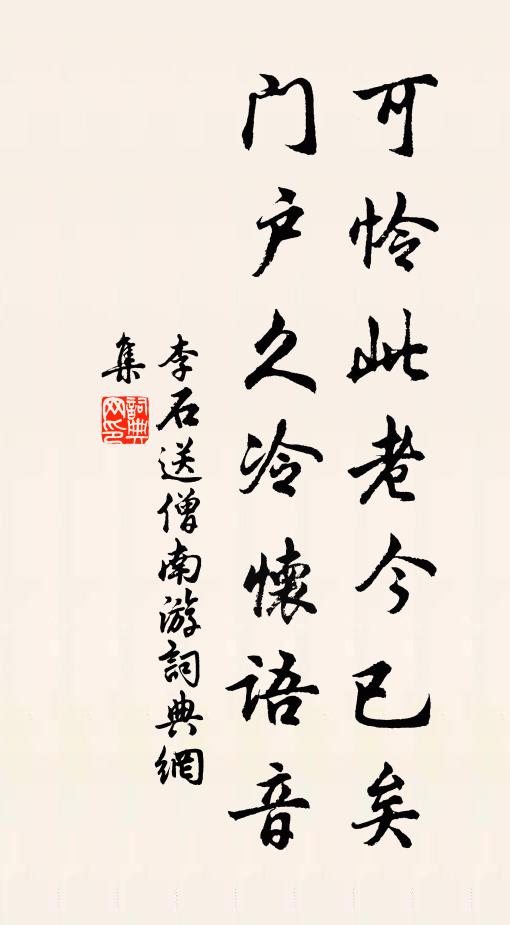 可怜此老今已矣
门户久冷懷语音
李石送僧南游詞典網
集
詞典网印